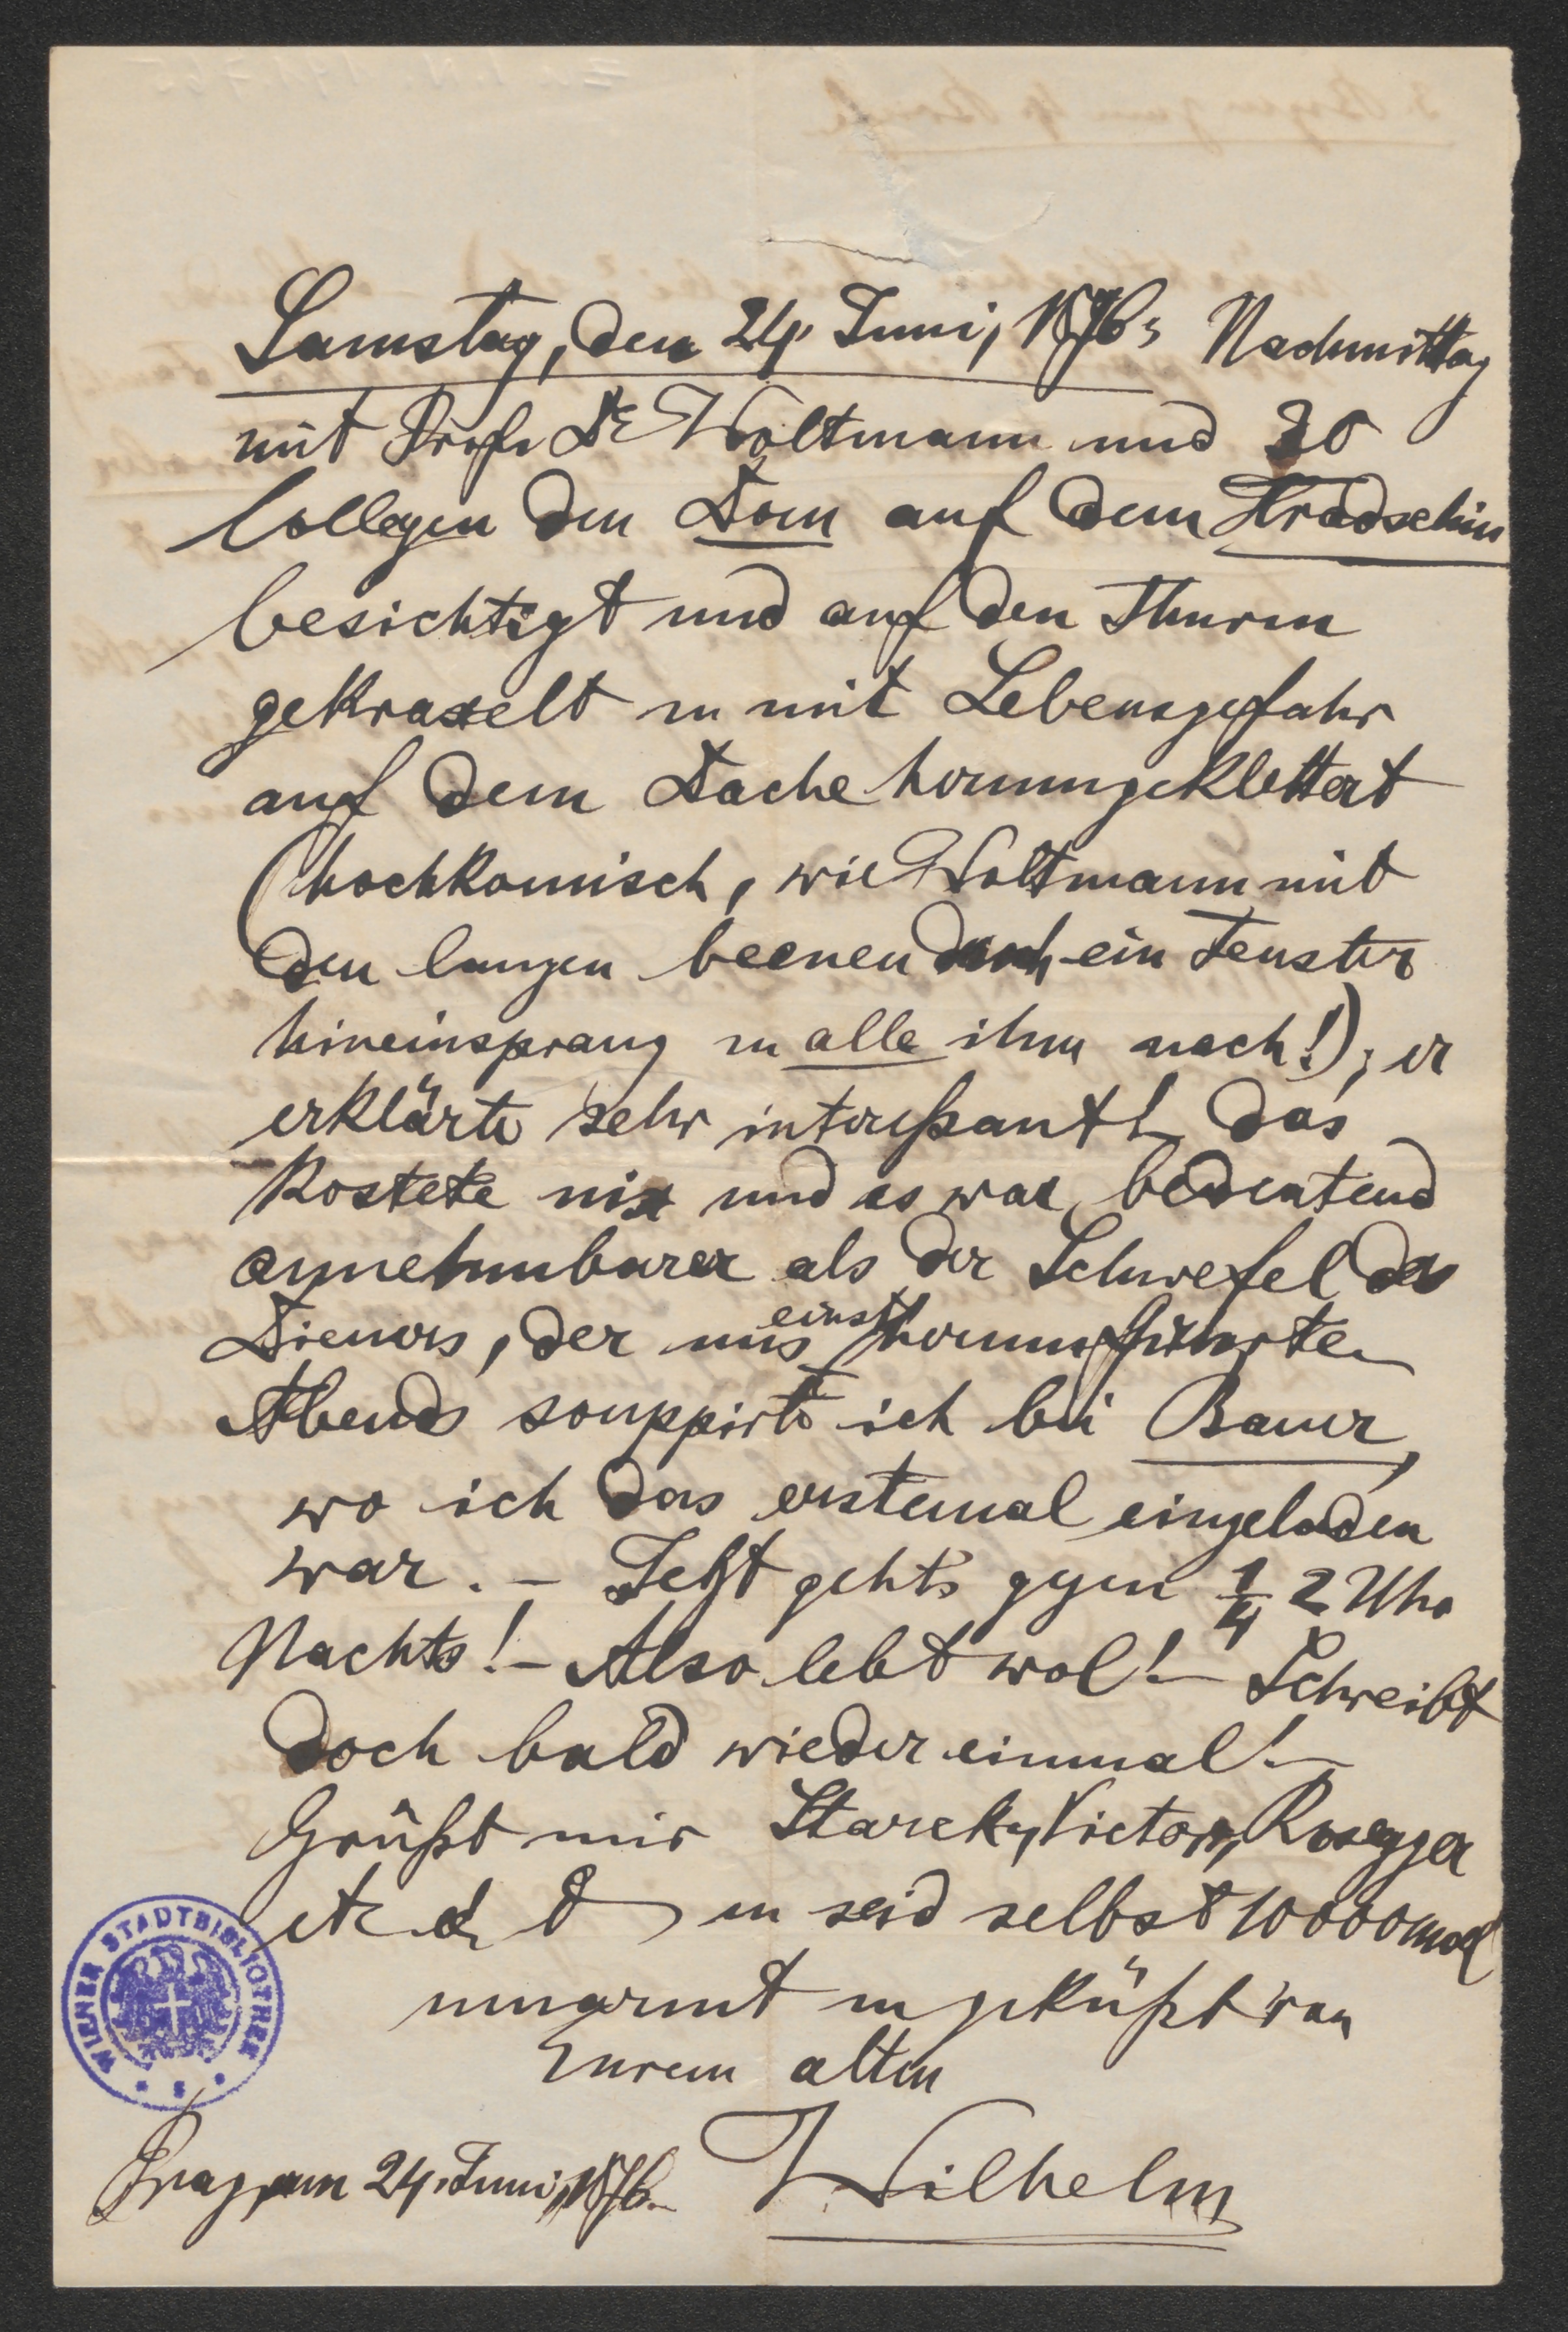 Samstag, den 24. Juni, 1876, Nachmittag
mit Prof. Dr Woltmann und 30
Collegen den Dom auf dem Hradschin
besichtigt und auf den Thurm
gekraxelt u mit Lebensgefahr
auf dem Dache herumgeklettert
(hochkomisch, wie Woltmann mit
den langen beenen durch ein Fenster
hineinsprang u alle ihm nach!); er
erklärte sehr interßant! das
kostete nix und es war bedeutend
annehmbarer als der Schwefel des
Dieners, der uns einst herumführte.
Abends souppirte ich bei Bauer,
wo ich das erstemal eingeladen
war. – Jetzt gehts gegen 1/4 2 Uhr
Nachts! – Also lebt wol! – Schreibt
doch bald wieder einmal! –
Grüßt mir Starcky, Victor, Rosegger
etc u seid selbst 10000mal
umarmt u geküßt von
Eurem alten
Wilhelm
Prag, am 24. Juni, 1876.
WIENER STADTBIBLIOTHEK